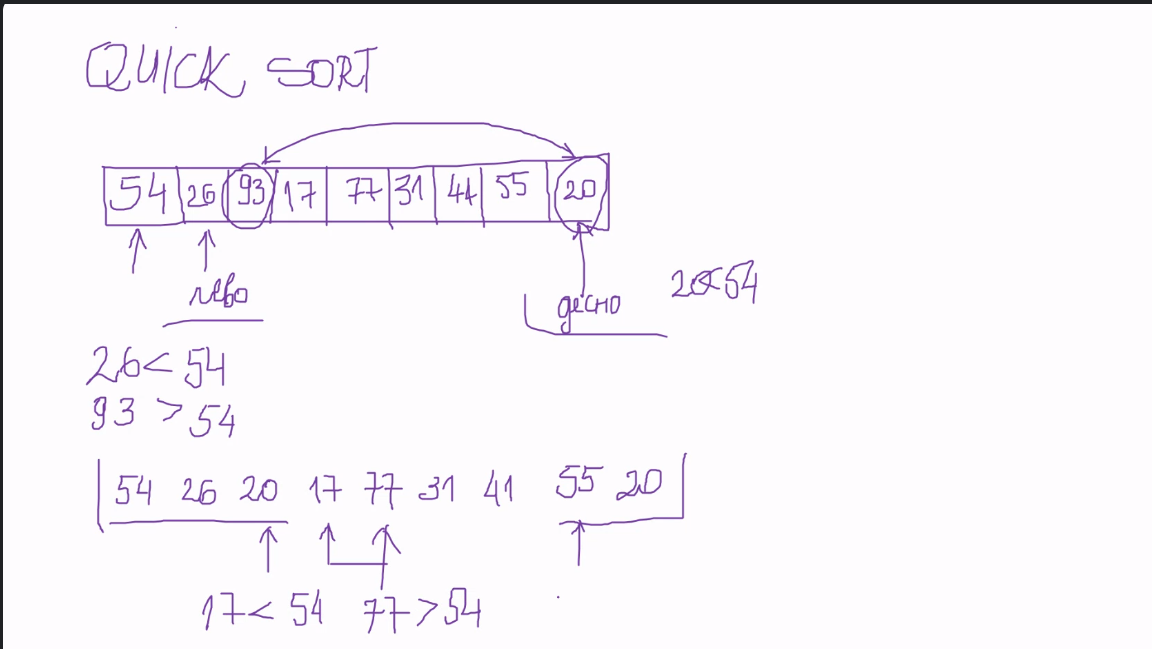 QUICK SORT
54 26 93 17 77 31 44 55 20
лево
десно
20<54
26< 54
93 > 54
54 26 20 17 77 31 41 55 20
17< 54 77>54